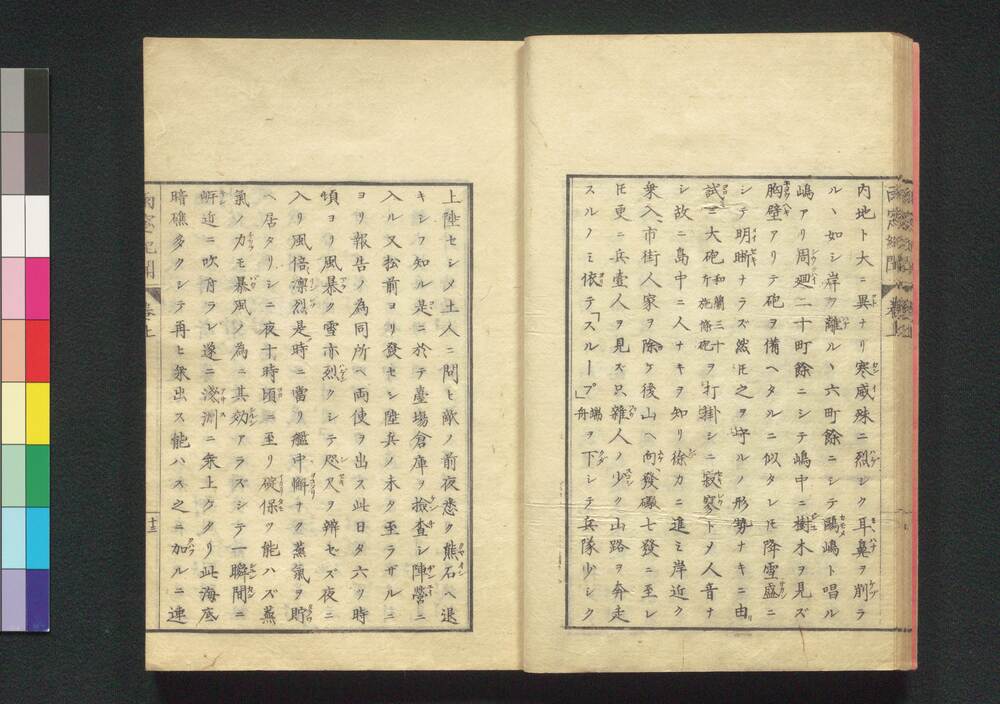 内地ト大ニ異ナリ寒威殊ニ烈シク耳鼻ヲ削ラ
ルヽ如シ岸ヲ離ルヽ六町餘ニシテ鷗嶋ト唱ル
嶋アリ周廻二十町餘ニシテ嶋中ニ樹木ヲ見ズ
胸壁アリテ砲ヲ備ヘタルニ似タレ𪜈降雪盛ニ
シテ明晰ナラズ然𪜈之ヲ守ルノ形勢ナキニ由リ
試ニ大砲和蘭三十斤施條砲ヲ打掛シニ寂寥トメ人音ナ
シ故ニ島中ニ人ナキヲ知リ徐カニ進ミ岸近ク
乗入市街人家ヲ除ケ後山ヘ向發礮七發ニ至レ
𪜈更ニ兵壹人ヲ見ズ只雜人ノ少ク山路ヲ奔走
スルノミ依テ「スループ」端舟ヲ下シテ兵隊少シク
上陸セシメ土人ニ問ヒ敵ノ前夜悉ク熊石ヘ退
キシヿヲ知ル是ニ於テ臺場倉庫ヲ撿査シ陣營ニ
入ル又松前ヨリ發セシ陸兵ノ未タ至ラザルニ
ヨリ報告ノ為同所ヘ両使ヲ出ス此日夕六ツ時
頃ヨリ風暴ク雪亦烈クシテ咫尺ヲ辨ゼズ夜ニ
入リ風倍凛烈是時ニ當リ艦中懈ナク蒸氣ヲ貯
ヘ居タリシニ夜十時頃ニ至リ碇保ツ能ハズ蒸
氣ノカモ暴風ノ為ニ其効アラズシテ一瞬間ニ
岍近ニ吹寄ラレ遂ニ淺洲ニ乗上ケタリ此海底
暗礁多クシテ再ヒ乗出ス能ハス之ニ加ルニ連
卷上
十三